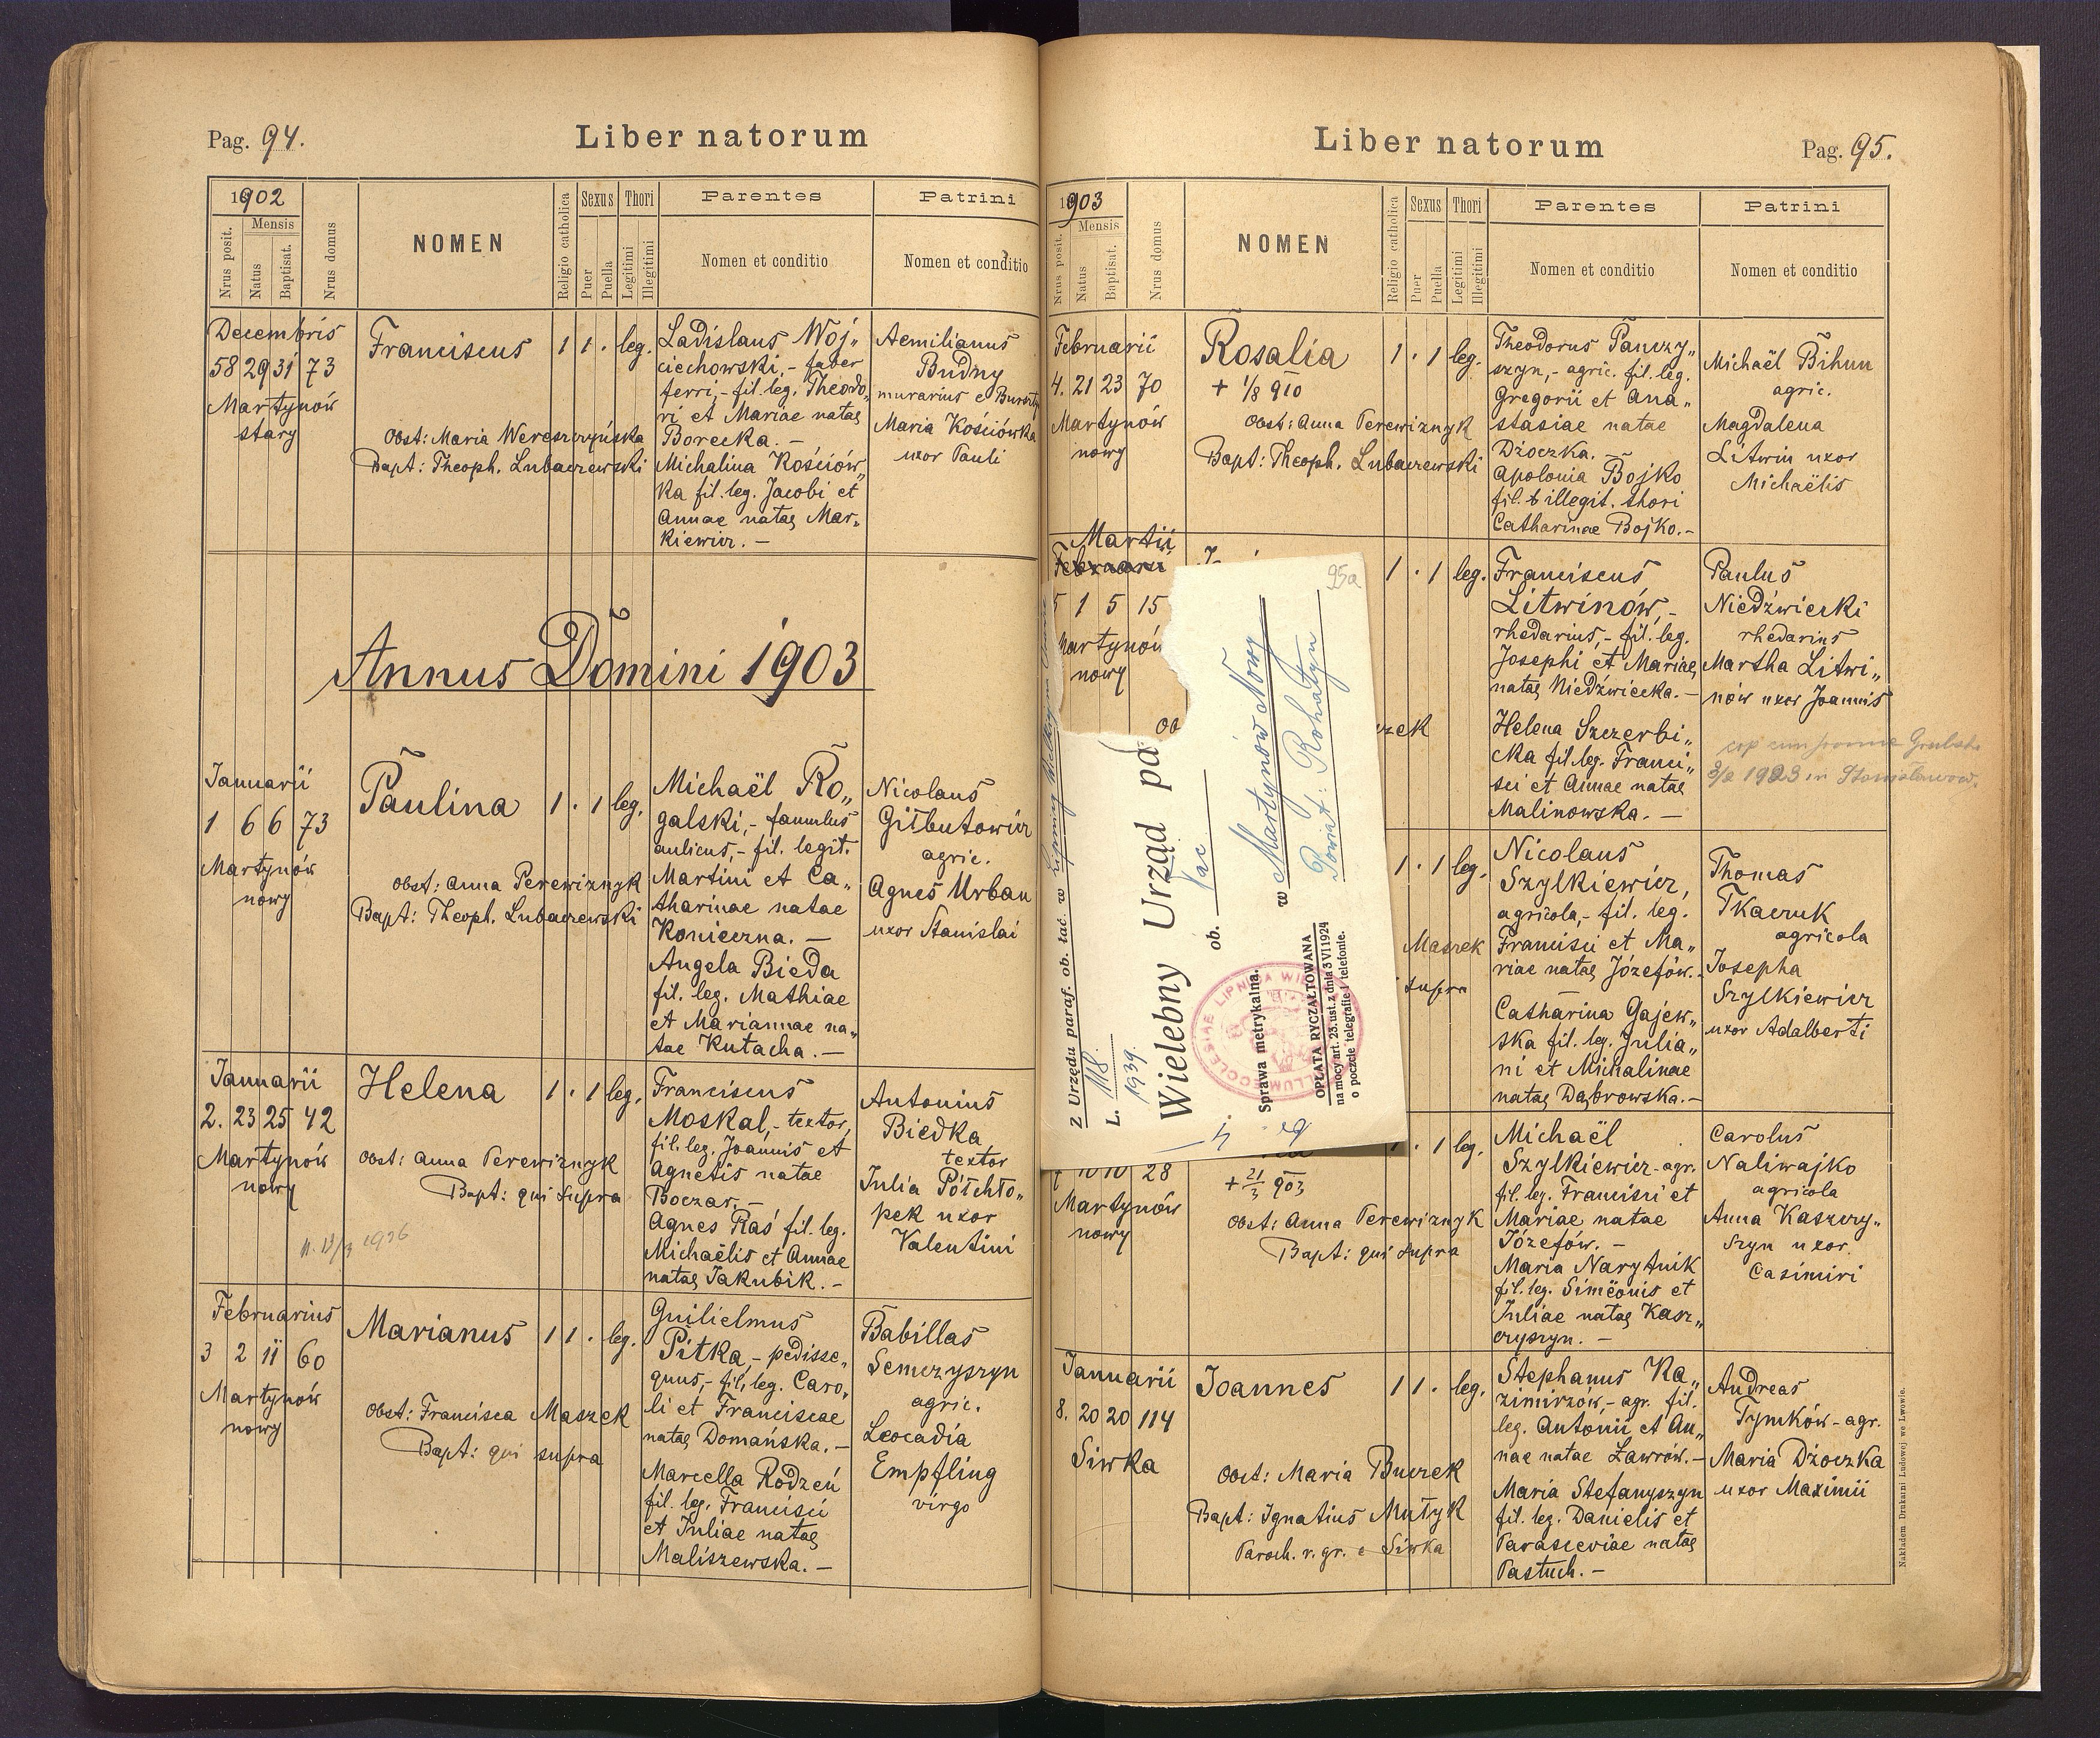 Pag. 94.
Liber natorum
1902
Mensis
Nrus posit.
Natus
Baptisat.
Nrus domus
NOMEN
Religio catholica
Sexus
Puer
Puella
Thori
Legitimi
Illegitimi
Parentes
Nomen et conditio
Patrini
Nomen et conditio
Decembris
58 29 31 73
Martynów
stary
Franciscus
1 1 . leg.
Obst: Maria Wereszczyńska
Bapt: Theoph. Lubaczewski
Ladislaus Woj„
ciechowski,- faber
ferri,- fil. leg. Theodo„
ri et Mariae natae
Borecka. -
Michalina Kościów„
ka fil. leg. Jacobi et
Annae natae Mar„
kiewicz. -
Aemilianus
Budny
murarius e
Maria Kościówka
uxor Pauli
Annus Domini 1903
Januarii
1 6 6 73
Martynów
nowy
Paulina
1 . 1 leg.
Obst: Anna Perewiznyk
Bapt: Theoph. Lubaczewski
Michaël Ro„
galski,- famulus
aulicus,- fil. legit.
Martini et Ca„
tharinae natae
Konieczna. -
Angela Bieda
fil. leg. Mathiae
et Mariannae na„
tae Kutacha. -
Nicolaus
Giłbutowicz
agric.
Agnes Urban
uxor Stanislai
Januarii
2. 23 25 42
Martynów
nowy
Helena
1 . 1 leg.
Obst: Anna Perewiznyk
Bapt: qui supra
1936
Franciscus
Moskal,- textor,
fil. leg. Joannis et
Agnetis natae
Boczar. -
Agnes Raś fil. leg.
Michaëlis et Annae
natae Jakubik. -
Antonius
Biedka
textor
Julia Półchło„
pek uxor
Valentini
Februarius
3 2 11 60
Martynów
nowy
Marianus
1 1 . leg.
Obst: Francisca Maszek
Bapt: qui supra
Guilielmus
Pitka,- pedisse„
quus,- fil. leg. Caro„
li et Franciscae
natae Domańska. -
Marcella Rodzeń
fil. leg. Francisci
et Juliae natae
Maliszewska. -
Babillas
Semczyszyn
agric.
Leocadia
Empfling
virgo
Liber natorum
Pag. 95.
1903
Mensis
Nrus posit.
Natus
Baptisat.
Nrus domus
NOMEN
Religio catholica
Sexus
Puer
Puella
Thori
Legitimi
Illegitimi
Parentes
Nomen et conditio
Patrini
Nomen et conditio
Februarii
4. 21 23 70
Martynów
nowy
Rosalia
+ 1/8 910
1 . 1 leg.
Obst: Anna Perewiznyk
Bapt: Theoph. Lubaczewski
Theodorus Panczy„
szyn,- agric. fil. leg.
Gregorii et Ana„
stasiae natae
Dżoczka. -
Apolonia Bojko
fil. illegit. thori
Catharinae Bojko. -
Michaël Bihun
agric.
Magdalena
Litwin uxor
Michaëlis
Martii
Februarii
5 1 5 15
Martynów
nowy
1 . 1 leg.
Franciscus
Litwinów,-
rhedarius,- fil. leg.
Josephi et Mariae
natae Niedźwiecka. -
Helena Szczerbi„
cka fil. leg. Franci„
sci et Annae natae
Malinowska. -
Paulus
Niedźwiecki
rhedarius
Martha Litwi„
nów uxor Joannis
1923 in Stanisławow.
95a
Z Urzędu paraf. ob. łac. w
L. 118
1939.
Wielebny Urząd pa
ob. łac
w Martynów Nowy
Powiat: Rohatyn
Sprawa metrykalna.
OPŁATA RYCZAŁTOWANA
na mocy art. 23. ust. z dnia 3 VI 1924
o poczcie telegrafie i telefonie.
1 . 1 leg.
Maszek
supra
Nicolaus
Szylkiewicz,
agricola,- fil. leg.
Francisci et Ma„
riae natae Józefów. -
Catharina Gajew„
ska fil. leg. Julia„
ni et Michalinae
natae Dąbrowska. -
Thomas
Tkaczuk
agricola
Josepha
Szylkiewicz
uxor Adalberti
10 10 28
Martynów
nowy
+ 21/3 903
1 . 1 leg.
Obst: Anna Perewiznyk
Bapt: qui supra
Michaël
Szylkiewicz - agr.
fil. leg. Francisci et
Mariae natae
Józefów. -
Maria Narytnik
fil. leg. Simëonis et
Juliae natae Kasz„
czyszyn. -
Carolus
Naliwajko
agricola
Anna Kaszczy„
szyn uxor
Casimiri
Januarii
8. 20 20 114
Siwka
Joannes
1 1 . leg.
Obst: Maria Buczek
Bapt: Ignatius Mutyk
Paroch. r. gr. e Siwka
Stephanus Ka„
zimirzów,- agr. fil.
leg. Antonii et An„
nae natae Ławrów. -
Maria Stefanyszyn
fil. leg. Danielis et
Parasceviae natae
Pastuch. -
Andreas
Tymków - agr.
Maria Dżoczka
uxor Maximii
Nakładem Drukarni Ludowej we Lwowie.